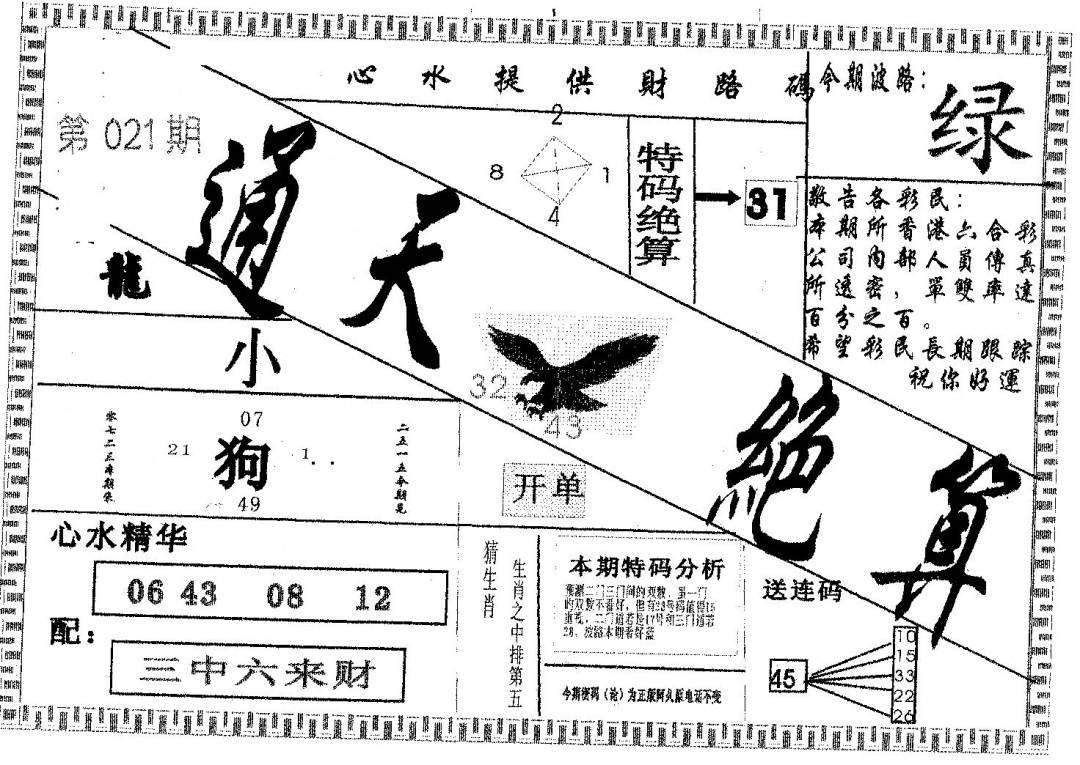 心水提供財路碼
今期波路：
绿
第021期
通天絕算
2
8
1
4
特码绝算
31
敬告各彩民：
本期所香港六合彩
公司内部人員傳真
所透密，單雙率達
百分之百。
希望彩民長期跟踪
祝你好運
龍
小
32
43
开单
07
21
狗
1..
49
二五一五今期見
心水精华
06 43 08 12
配：
三中六来财
猜生肖
生肖之中排第五
本期特码分析
送连码
45
10
15
33
22
26